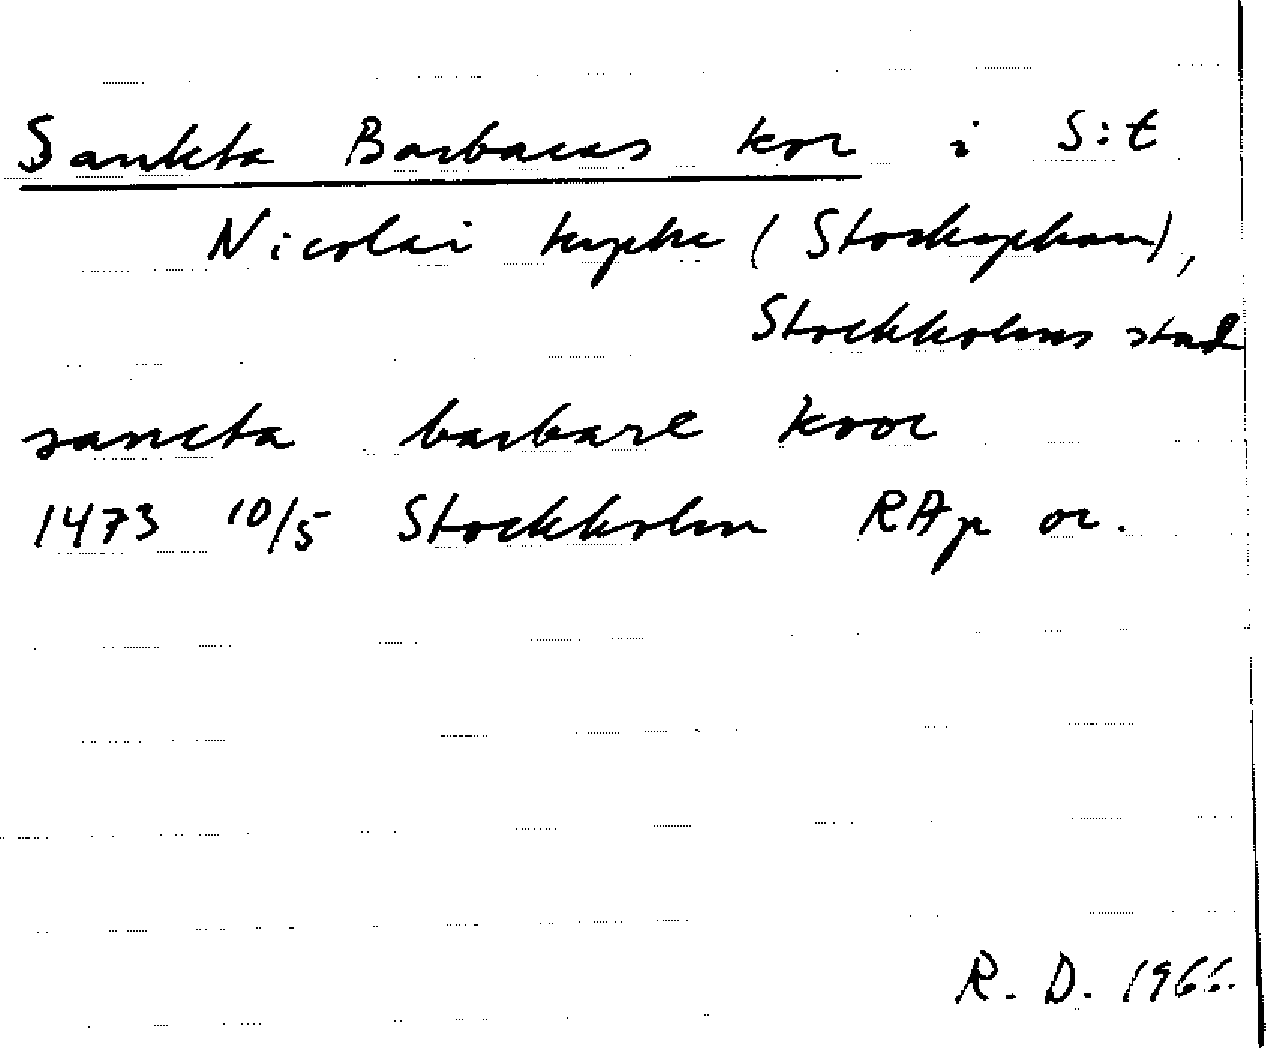 Sankta Barbaras kor i S:t
Nicolai kyrka (Storkyrkan),
Stockholms stad
sancta barbare koor
1473 10/5 Stockholm RAp or.
R. D. 1966.